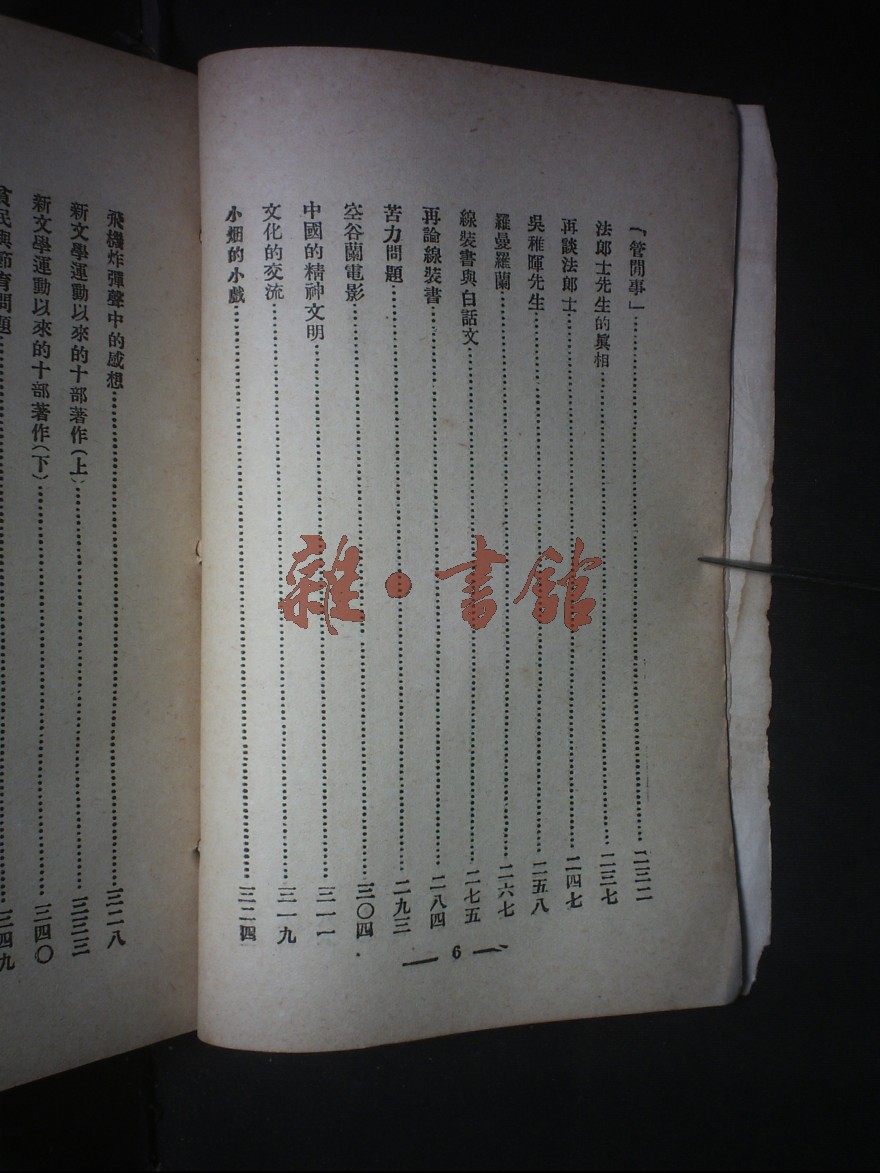 「管閒事」……二三二
法郎士先生的眞相……二三七
再談法郎士……二四七
吳稚暉先生……二五八
羅曼羅蘭……二六七
線裝書與白話文……二七五
再論線裝書……二八四
苦力問題……二九三
空谷蘭電影……三〇四
中國的精神文明……三一一
文化的交流……三一九
小烟的小戲……三二四
6
飛機炸彈聲中的感想……三二八
新文學運動以來的十部著作(上)……三三三
新文學運動以來的十部著作(下)……三四〇
貧民與節育問題……三四九
雜·書館